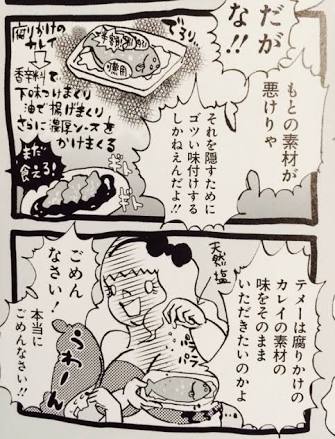 だが
な!!
もとの素材が
悪けりゃ
それを隠すために
ゴツい味付けする
しかねえんだよ!!
でろり
腐りかけの
カレイ
香辛料で
下味つけまくり
油で揚げまくり
さらに濃厚ソースを
かけまくる
まだ
食える!
ギト
ギト
テメーは腐りかけの
カレイの素材の
味をそのまま
いただきたいのかよ
天然塩
パラ
パラ
ごめん
なさい!
うわーん
本当に
ごめんなさい!!